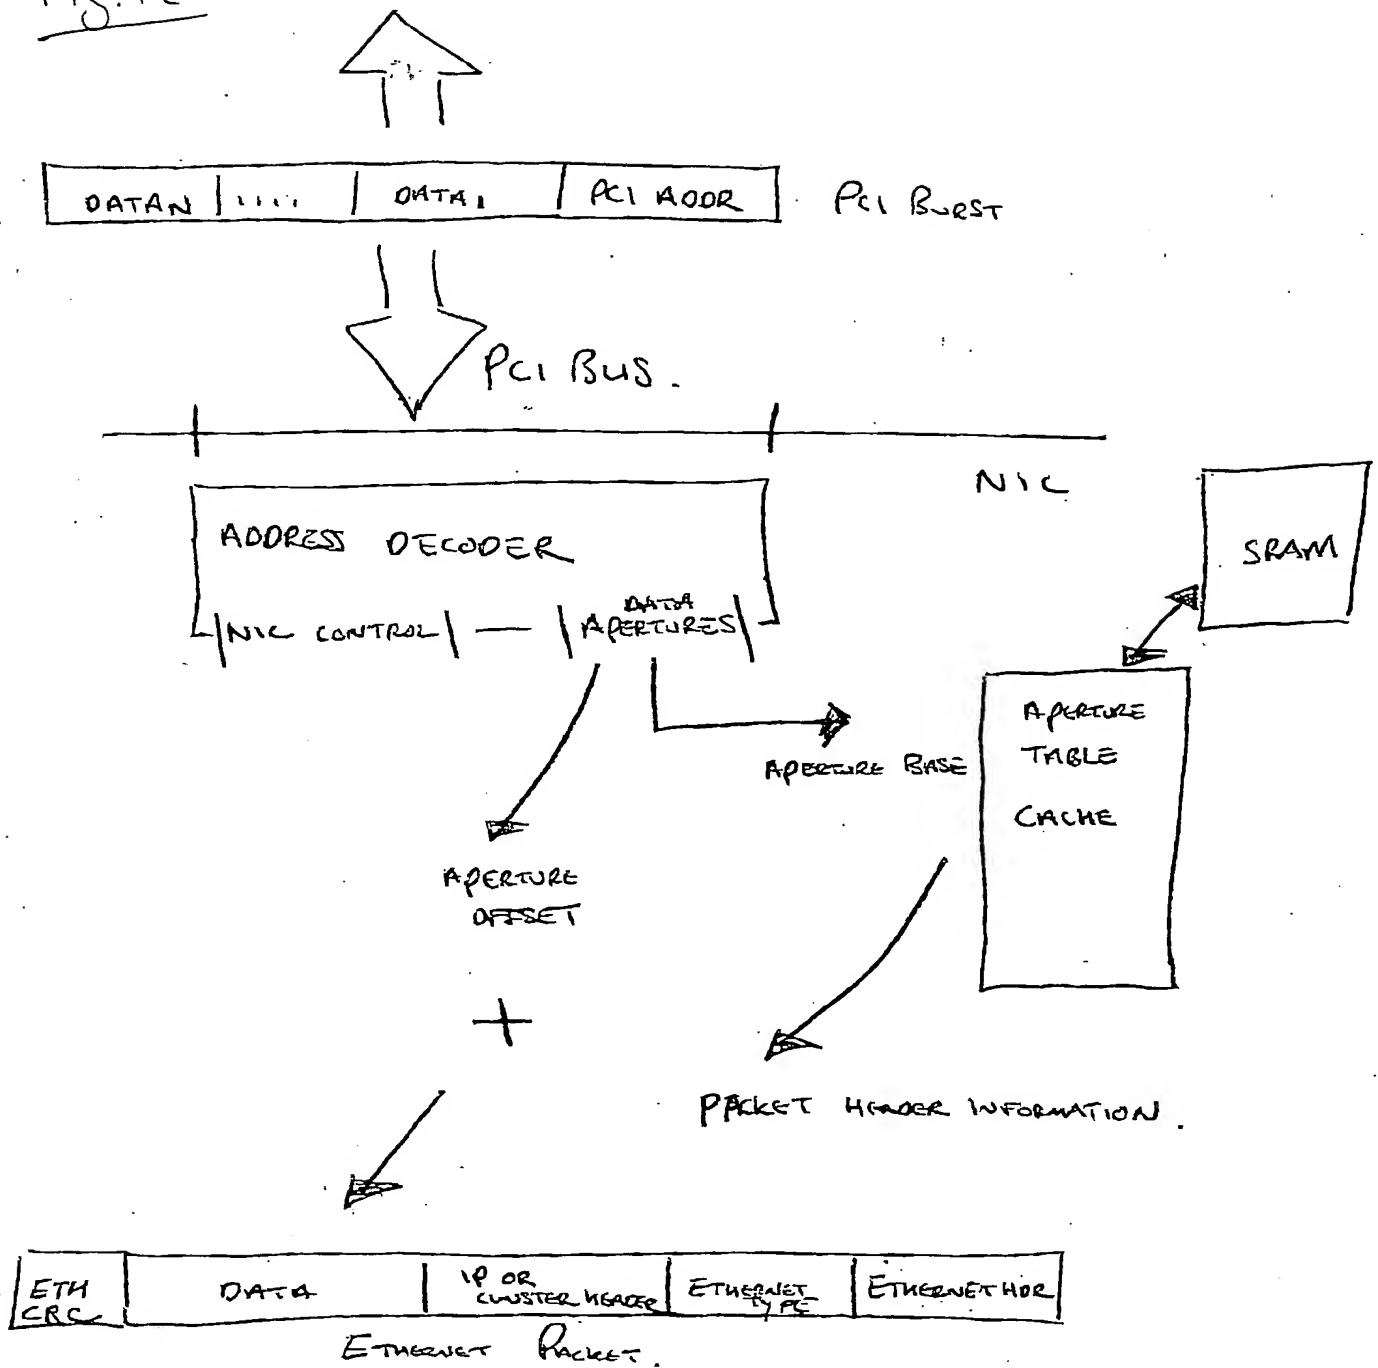 DATAN | .... | DATA1 | PCI ADDR
PCI BURST
PCI BUS.
NIC
SRAM
ADDRESS DECODER
NIC CONTROL | — | DATA
APERTURES
APERTURE
TABLE
CACHE
APERTURE BASE
APERTURE
OFFSET
+
PACKET HEADER INFORMATION.
ETH
CRC
DATA
IP OR
CLUSTER HEADER
ETHERNET
TYPE
ETHERNET HDR
ETHERNET PACKET.